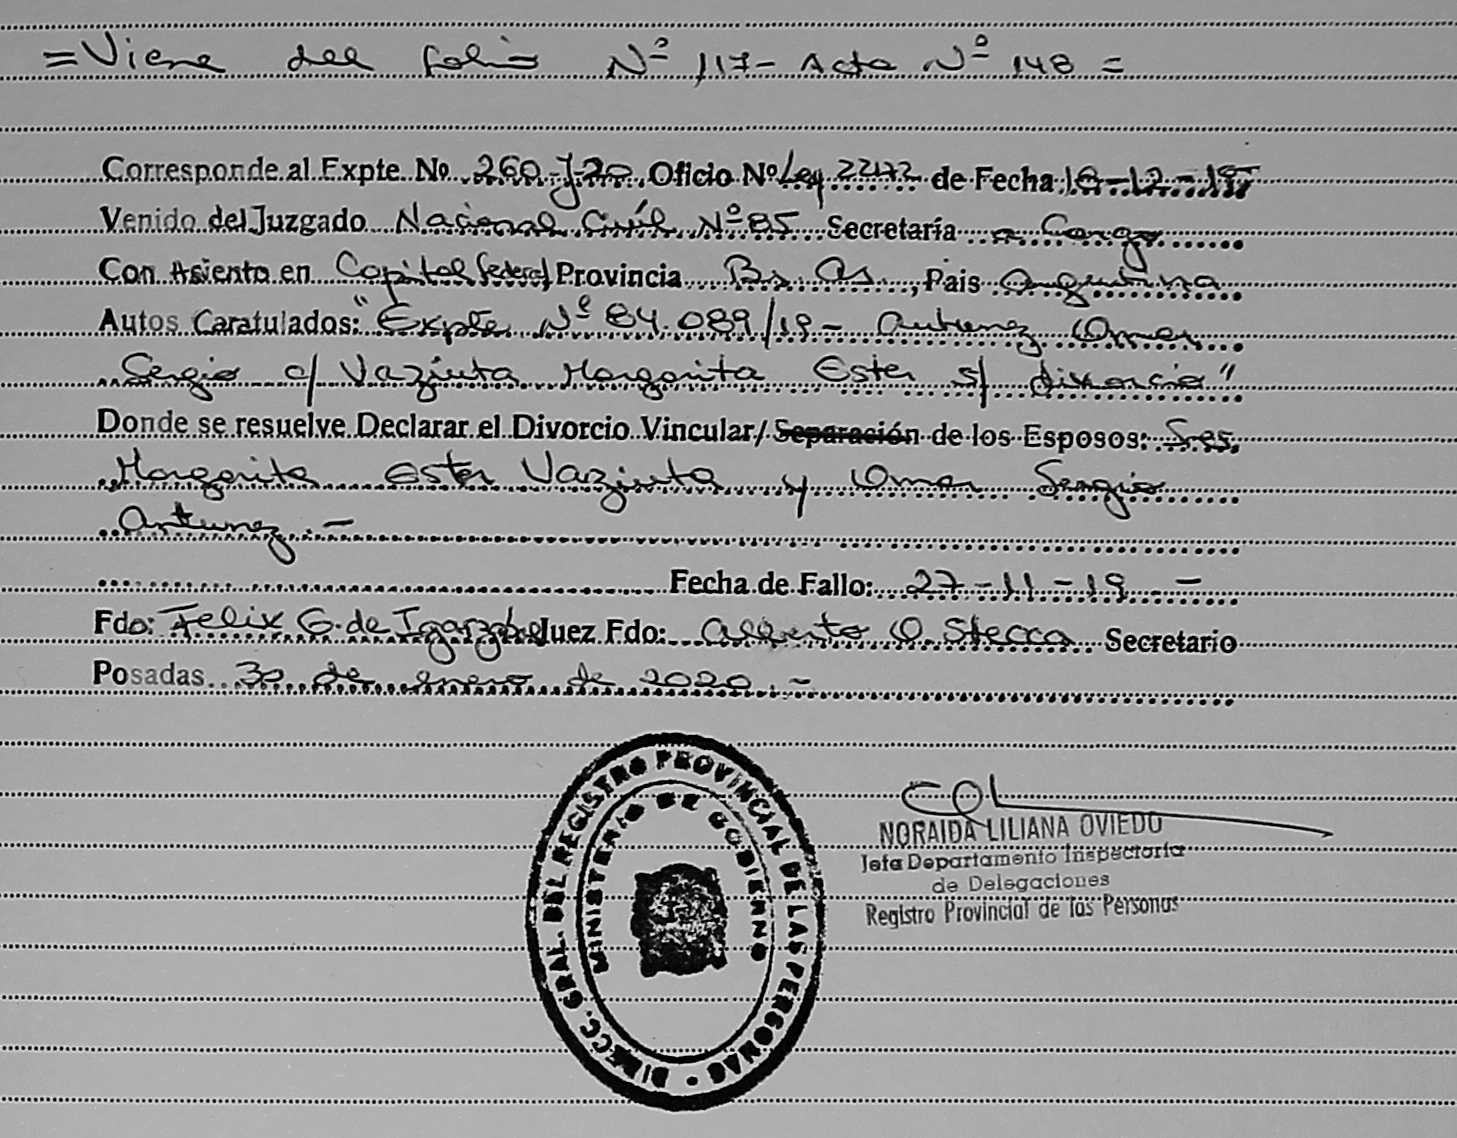 =Viene del folio Nº 117- Acta Nº 148=
Corresponde al Expte No 260-J-20. Oficio Nº Ley 22172 de Fecha 18-12-19
Venido del Juzgado Nacional Civil Nº 85 Secretaría a Cargo
Con Asiento en Capital federal Provincia Bs. As., Pais Argentina
Autos Caratulados: "Expte Nº 84.089/19- Antunez Omar
Sergio c/ Vazjuta Margarita Ester s/ divorcio"
Donde se resuelve Declarar el Divorcio Vincular/ Separación de los Esposos: Sres.
Margarita Ester Vazjuta y Omar Sergio
Antunez.-
Fecha de Fallo: 27-11-19.-
Fdo: Felix G. de Igarzabal Juez Fdo: Alberto O. Stecca Secretario
Posadas 30 de enero de 2020.-
DIRECC. GRAL. DEL REGISTRO PROVINCIAL DE LAS PERSONAS
MINISTERIO DE GOBIERNO
NORAIDA LILIANA OVIEDO
Jefa Departamento Inspectoría
de Delegaciones
Registro Provincial de las Personas